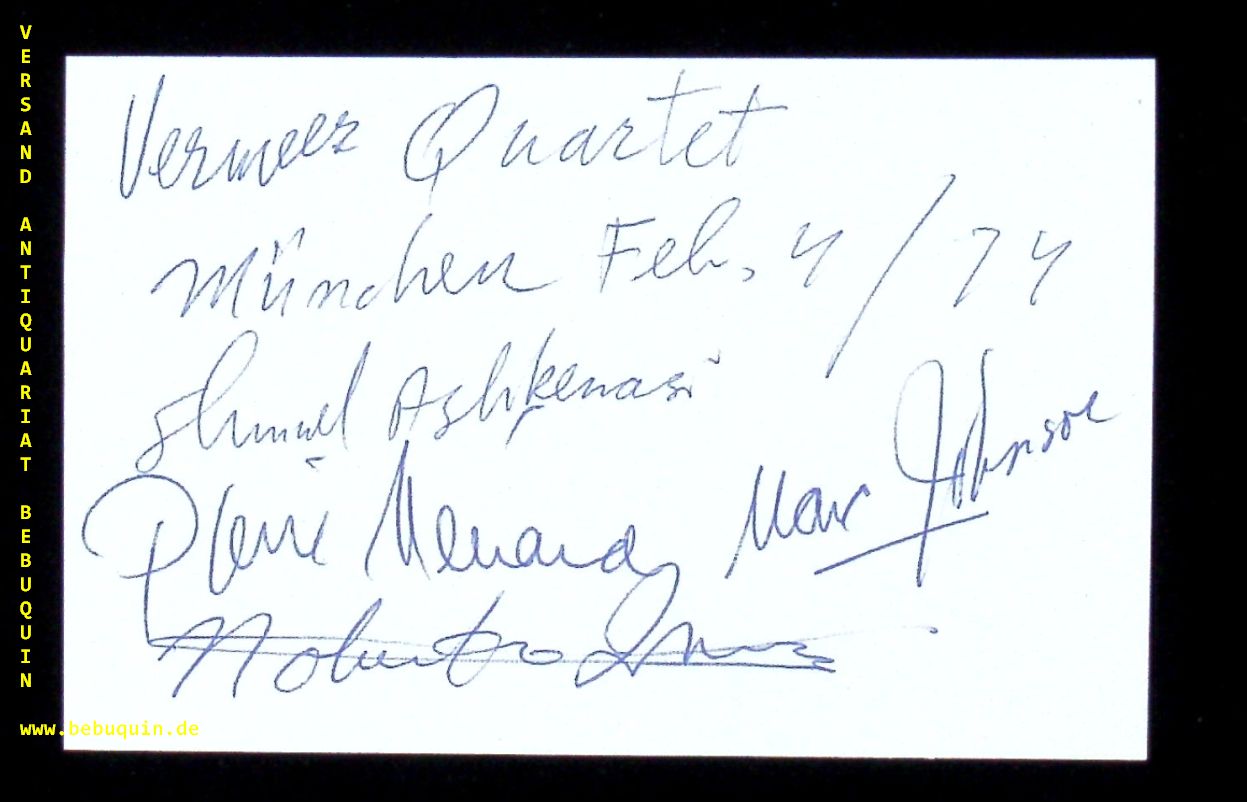 Vermeer Quartet
München Feb. 4/74
Shmuel Ashkenasi
Pierre Menard Marc Johnson
Nobuko Imai
VERSAND ANTIQUARIAT BEBUQUIN
www.bebuquin.de